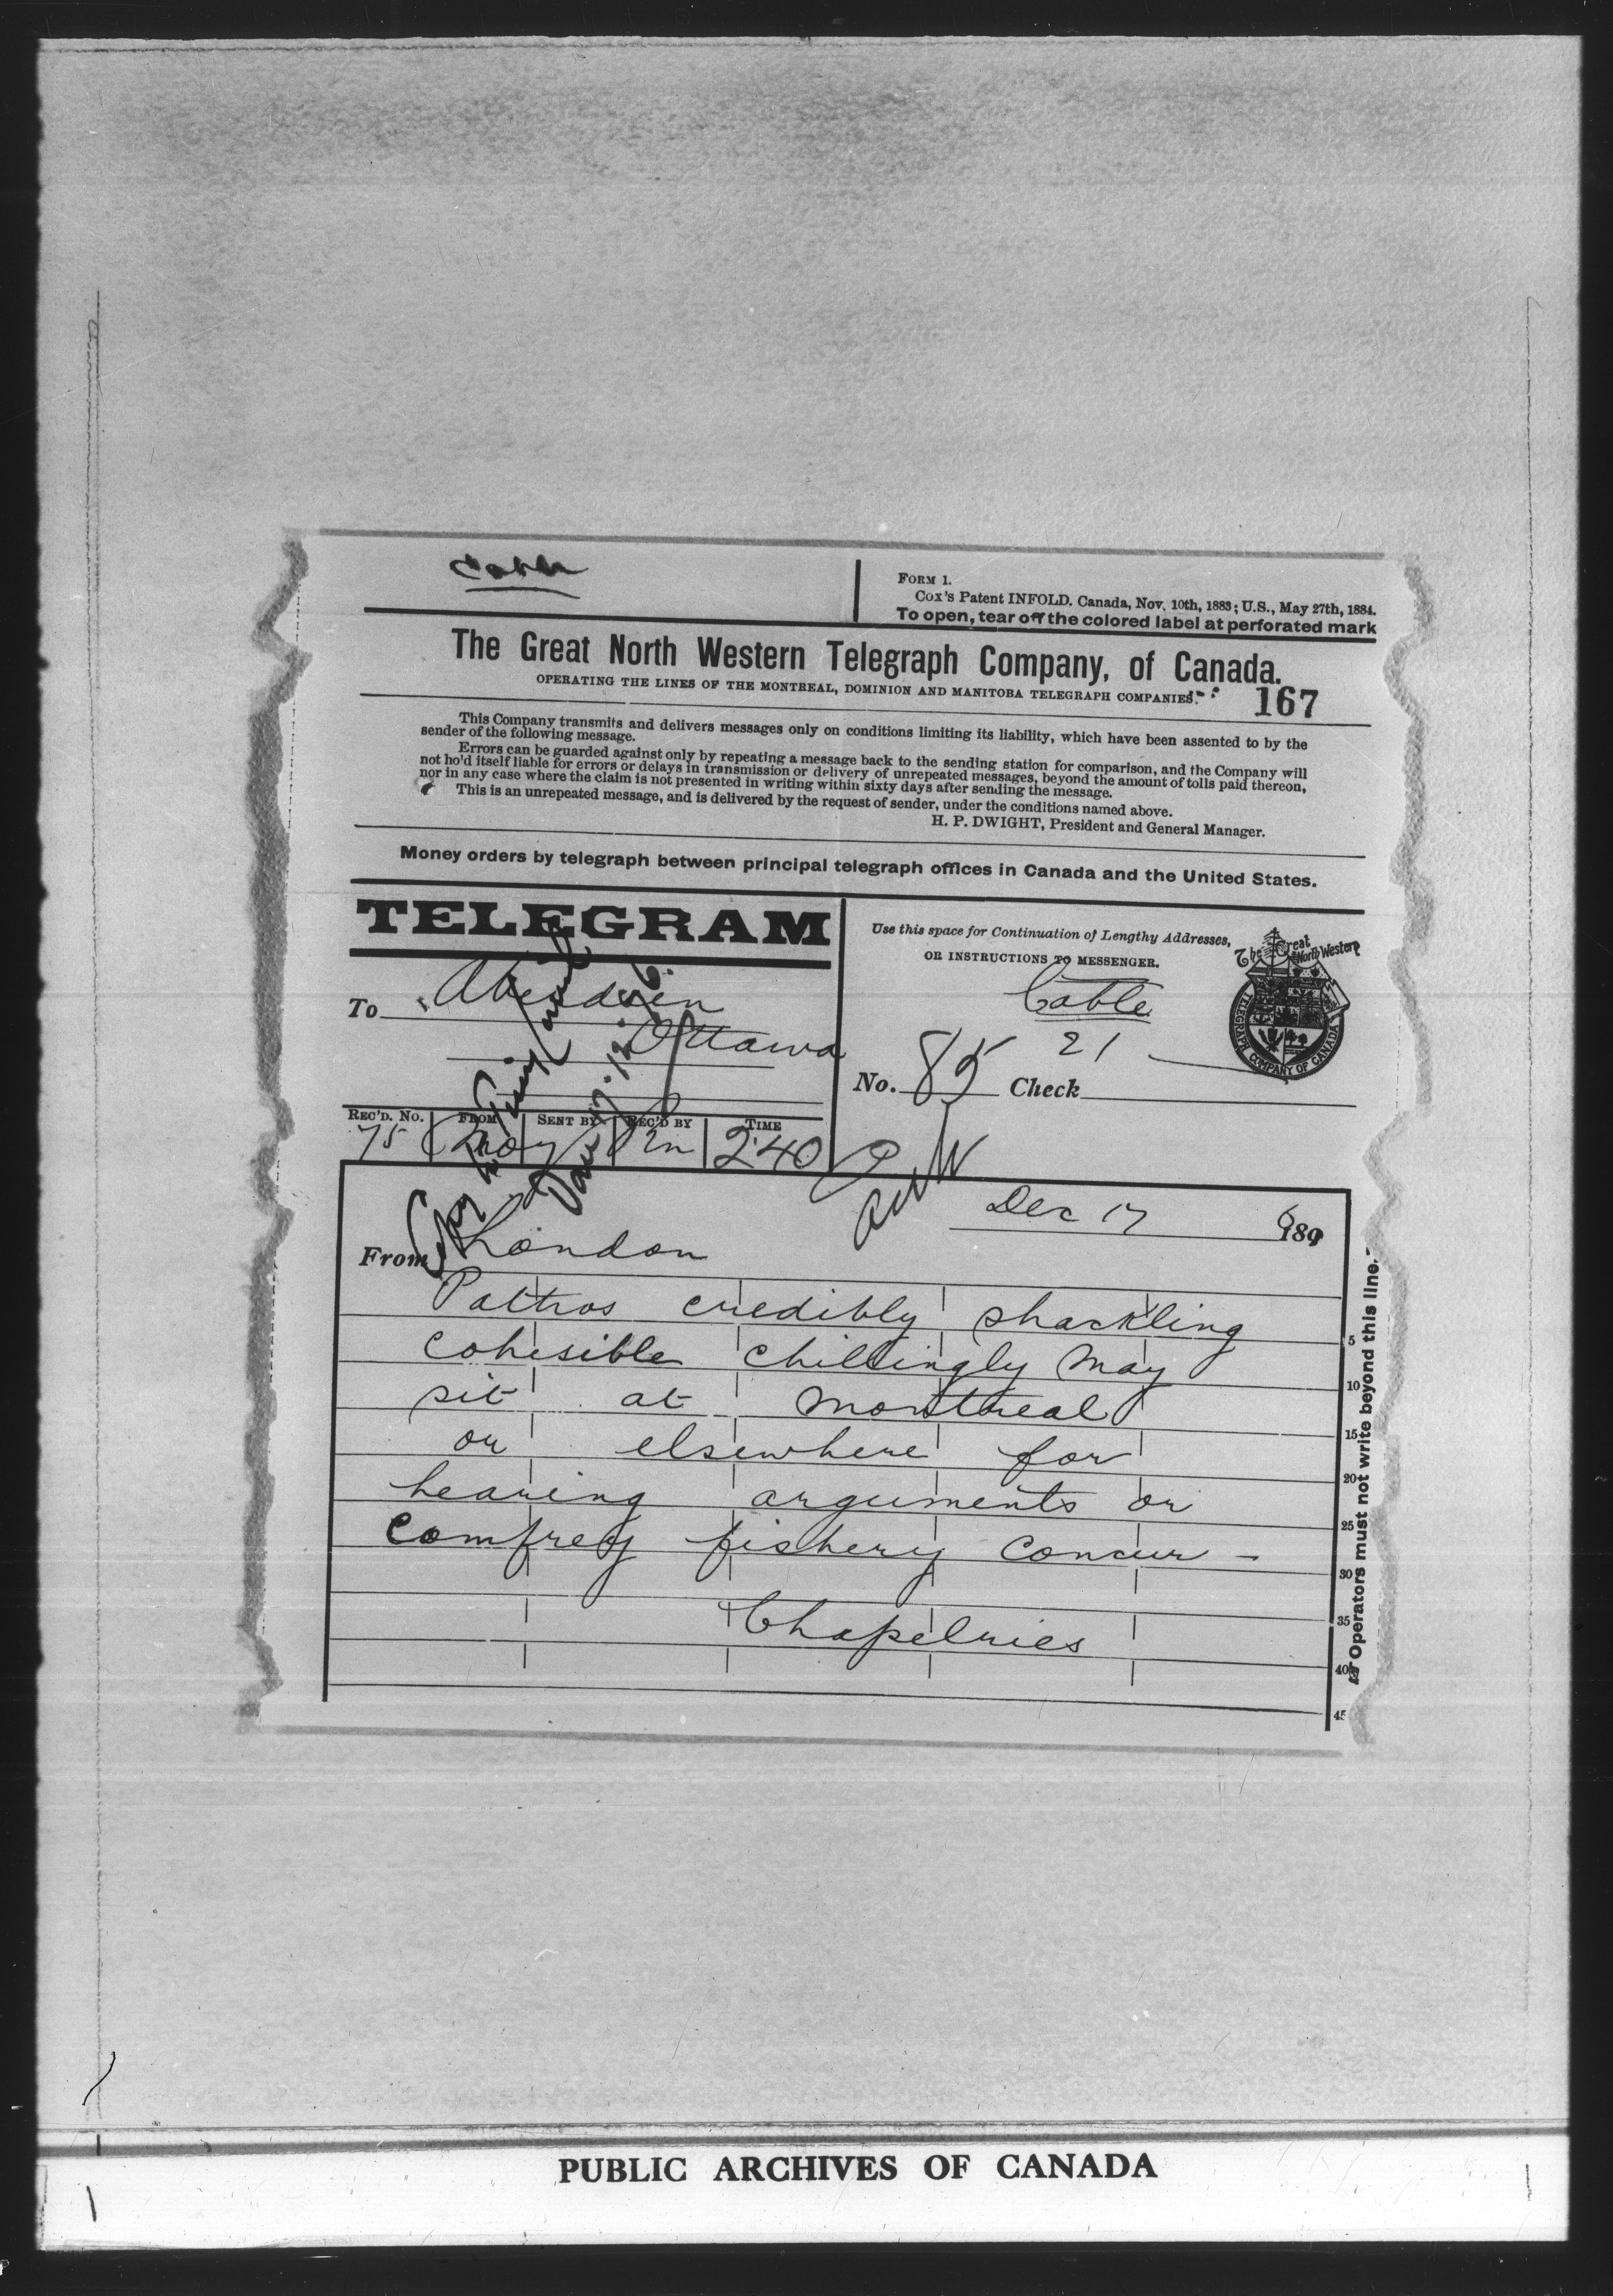 Cable
FORM 1.
Cox's Patent INFOLD. Canada, Nov. 10th, 1883; U.S., May 27th, 1884.
To open, tear off the colored label at perforated mark
The Great North Western Telegraph Company, of Canada.
OPERATING THE LINES OF THE MONTREAL, DOMINION AND MANITOBA TELEGRAPH COMPANIES.
167
This Company transmits and delivers messages only on conditions limiting its liability, which have been assented to by the
sender of the following message.
Errors can be guarded against only by repeating a message back to the sending station for comparison, and the Company will
not ho'd itself liable for errors or delays in transmission or delivery of unrepeated messages, beyond the amount of tolls paid thereon,
nor in any case where the claim is not presented in writing within sixty days after sending the message.
This is an unrepeated message, and is delivered by the request of sender, under the conditions named above.
H. P. DWIGHT, President and General Manager.
Money orders by telegraph between principal telegraph offices in Canada and the United States.
TELEGRAM
Use this space for Continuation of Lengthy Addresses,
OR INSTRUCTIONS TO MESSENGER.
The Great North Western
TELEGRAPH COMPANY OF CANADA
To Aberdeen
Ottawa
Cable
No. 85 Check 21
REC'D. No. FROM SENT BY REC'D BY TIME
75 2:40
Copy to Privy Council
17.12.96.
Dec 17 1896
From London
Pattros credibly shackling
cohesible chillingly may
sit at Montreal
or elsewhere for
hearing arguments or
comfrey fishery concur -
Chapelries
5
10
15
20
25
30
35
40
45
Operators must not write beyond this line.
PUBLIC ARCHIVES OF CANADA